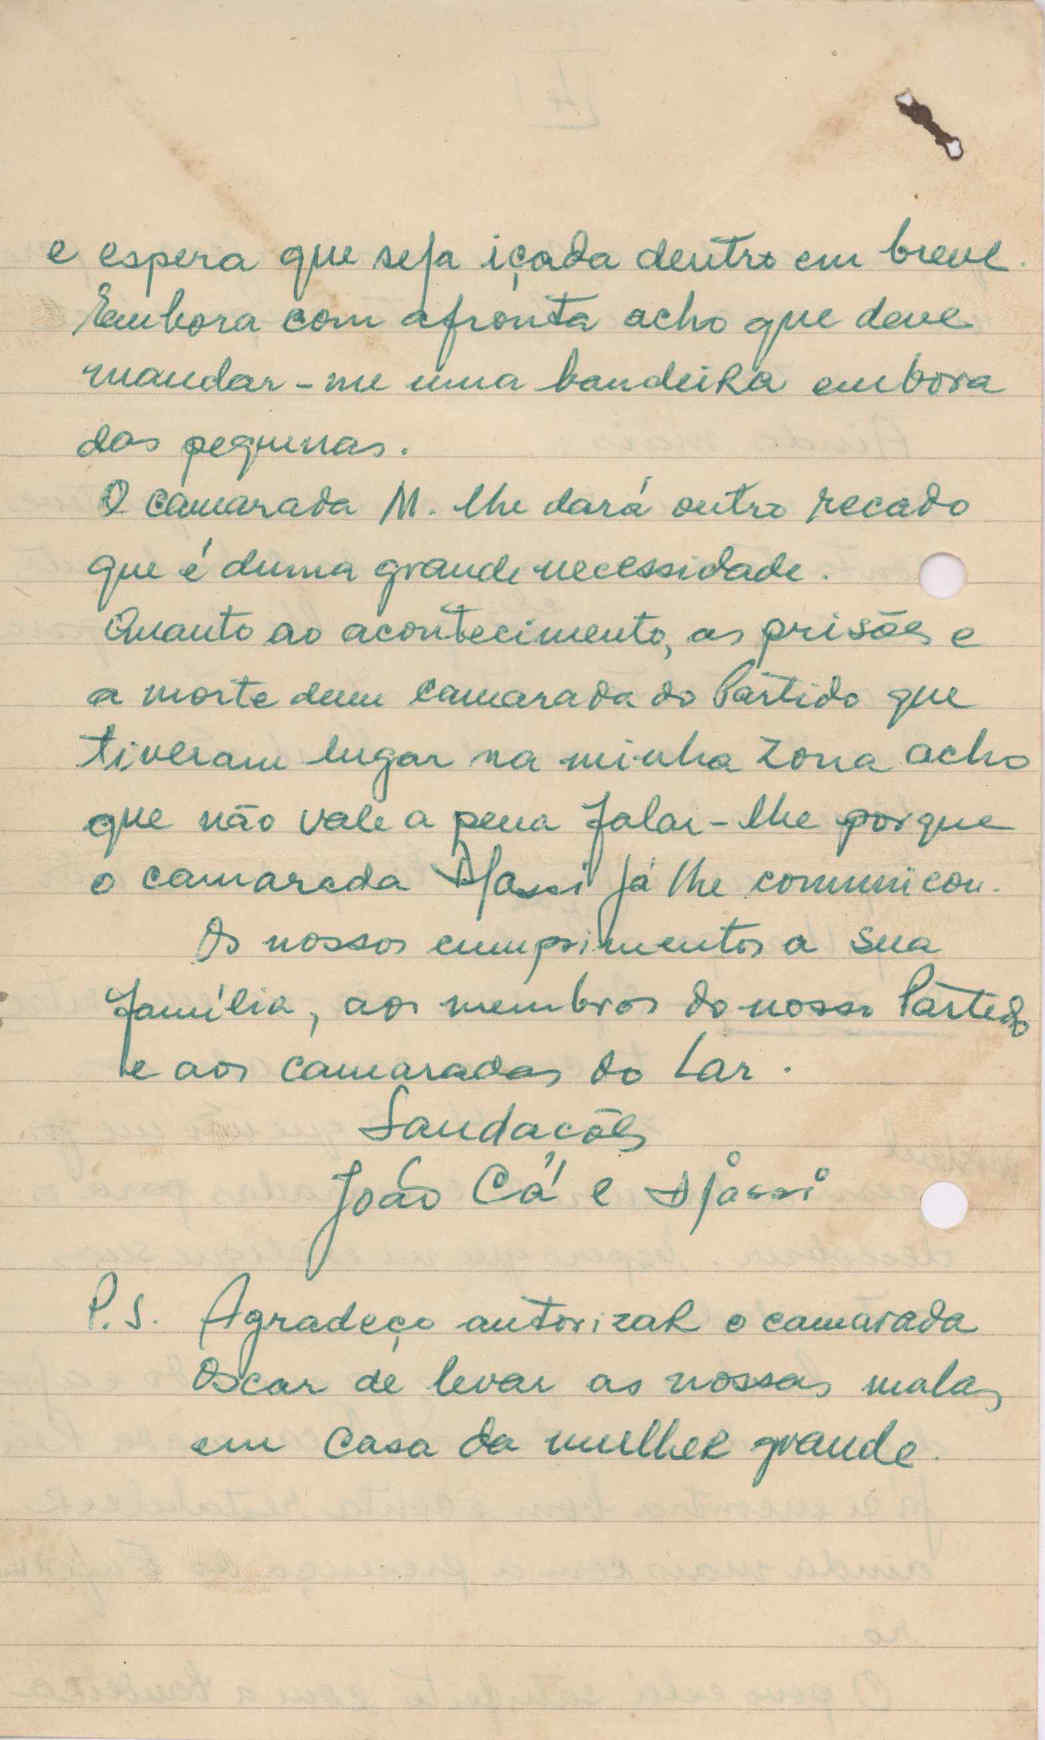 e espera que seja içada dentro em breve.
Embora com afronta acho que deve
mandar-me uma bandeira embora
das pequenas.
O camarada M. lhe dará outro recado
que é duma grande necessidade.
Quanto ao acontecimento, as prisões e
a morte dum camarada do Partido que
tiveram lugar na minha zona acho
que não vale a pena falar-lhe porque
o camarada Djassi já lhe comunicou.
Os nossos cumprimentos a sua
família, aos membros do nosso Partido
e aos camaradas do Lar.
Saudações
João Cá e Djassi
P.S. Agradeço autorizar o camarada
Oscar de levar as nossas malas
em casa da mulher grande.